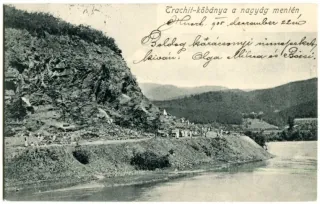 Trachit-kőbánya a nagyág mentén
Huszt, 905 december 22én
Boldog karácsonyi ünnepeket
kíván: Olga, Milma és Böisi.